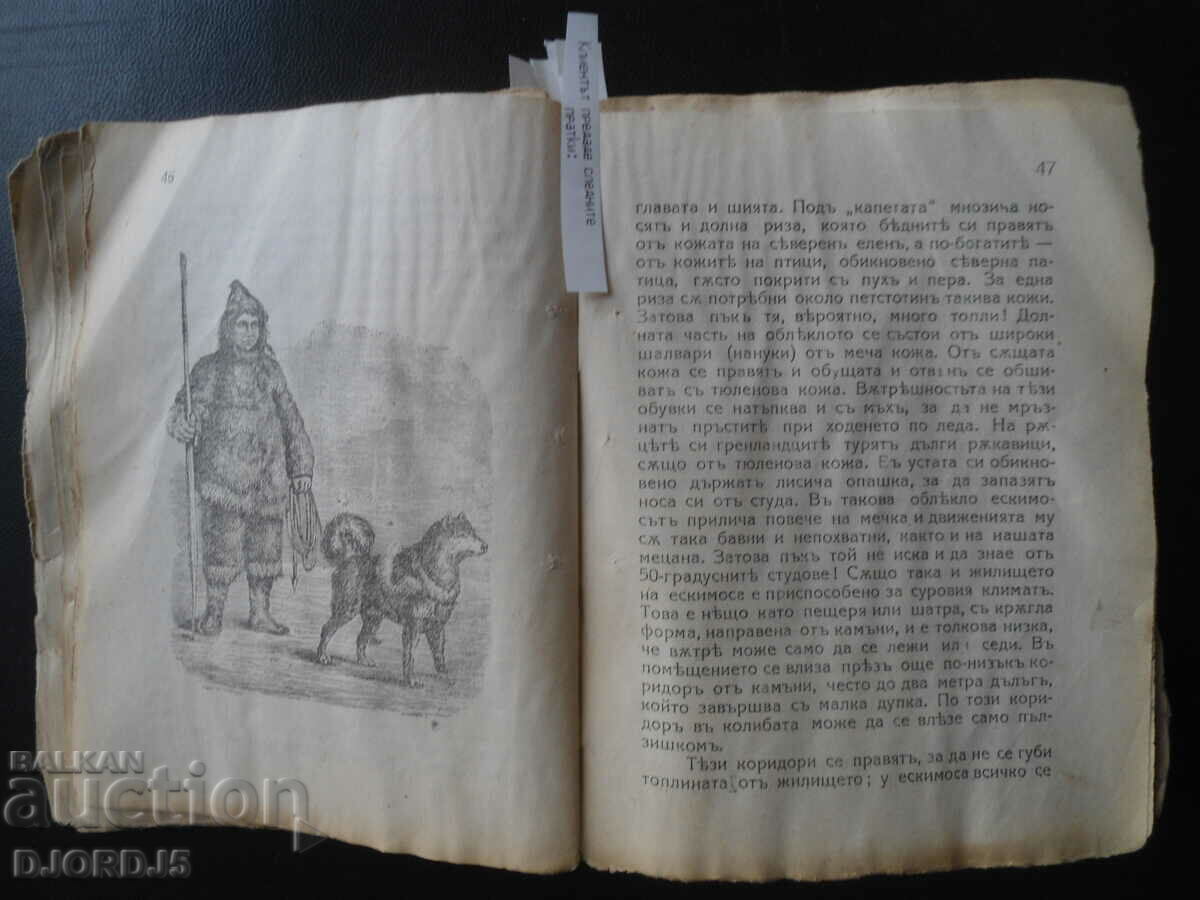 46
Клиентът предаде следните
пратки:
47
главата и шията. Подъ „капетата“ мнозина но-
сятъ и долна риза, която бѣднитѣ си правятъ
отъ кожата на сѣверенъ еленъ, а по-богатитѣ —
отъ кожитѣ на птици, обикновено сѣверна па-
тица, гѫсто покрити съ пухъ и пера. За една
риза сѫ потрѣбни около петстотинъ такива кожи.
Затова пъкъ тя, вѣроятно, много топли! Дол-
ната часть на облѣклото се състои отъ широки
шалвари (нануки) отъ меча кожа. Отъ сѫщата
кожа се правятъ и обущата и отвънъ се обши-
ватъ съ тюленова кожа. Вѫтрѣшностьта на тѣзи
обувки се натъпква и съ мъхъ, за да не мръз-
натъ пръститѣ при ходенето по леда. На рѫ-
цѣтѣ си гренландцитѣ турятъ дълги рѫкавици,
сѫщо отъ тюленова кожа. Въ устата си обикно-
вено държатъ лисича опашка, за да запазятъ
носа си отъ студа. Въ такова облѣкло ескимо-
сътъ прилича повече на мечка и движенията му
сѫ така бавни и непохватни, както и на нашата
мецана. Затова пъкъ той не иска и да знае отъ
50-градуснитѣ студове! Сѫщо така и жилището
на ескимоса е приспособено за суровия климатъ.
Това е нѣщо като пещеря или шатра, съ крѫгла
форма, направена отъ камъни, и е толкова низка,
че вѫтрѣ може само да се лежи или седи. Въ
помѣщението се влиза прѣзъ още по-низъкъ ко-
ридоръ отъ камъни, често до два метра дълъгъ,
който завършва съ малка дупка. По този кори-
доръ въ колибата може да се влѣзе само пъл-
зишкомъ.
Тѣзи коридори се правятъ, за да не се губи
топлината отъ жилището; у ескимоса всичко се
BALKAN
auction
DJORDJ5